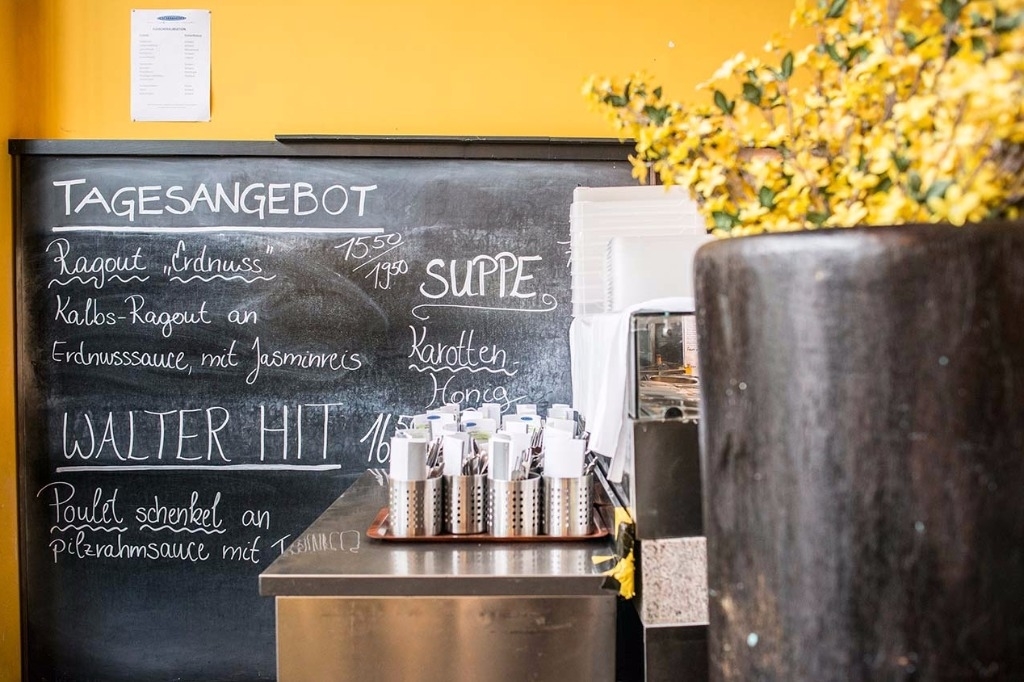 TAGESANGEBOT
Ragout „Erdnuss" 15.50 / 19.50
Kalbs-Ragout an
Erdnusssauce, mit Jasminreis
WALTER HIT
Poulet schenkel an
pilzrahmsauce mit
SUPPE
Karotten-
Honig